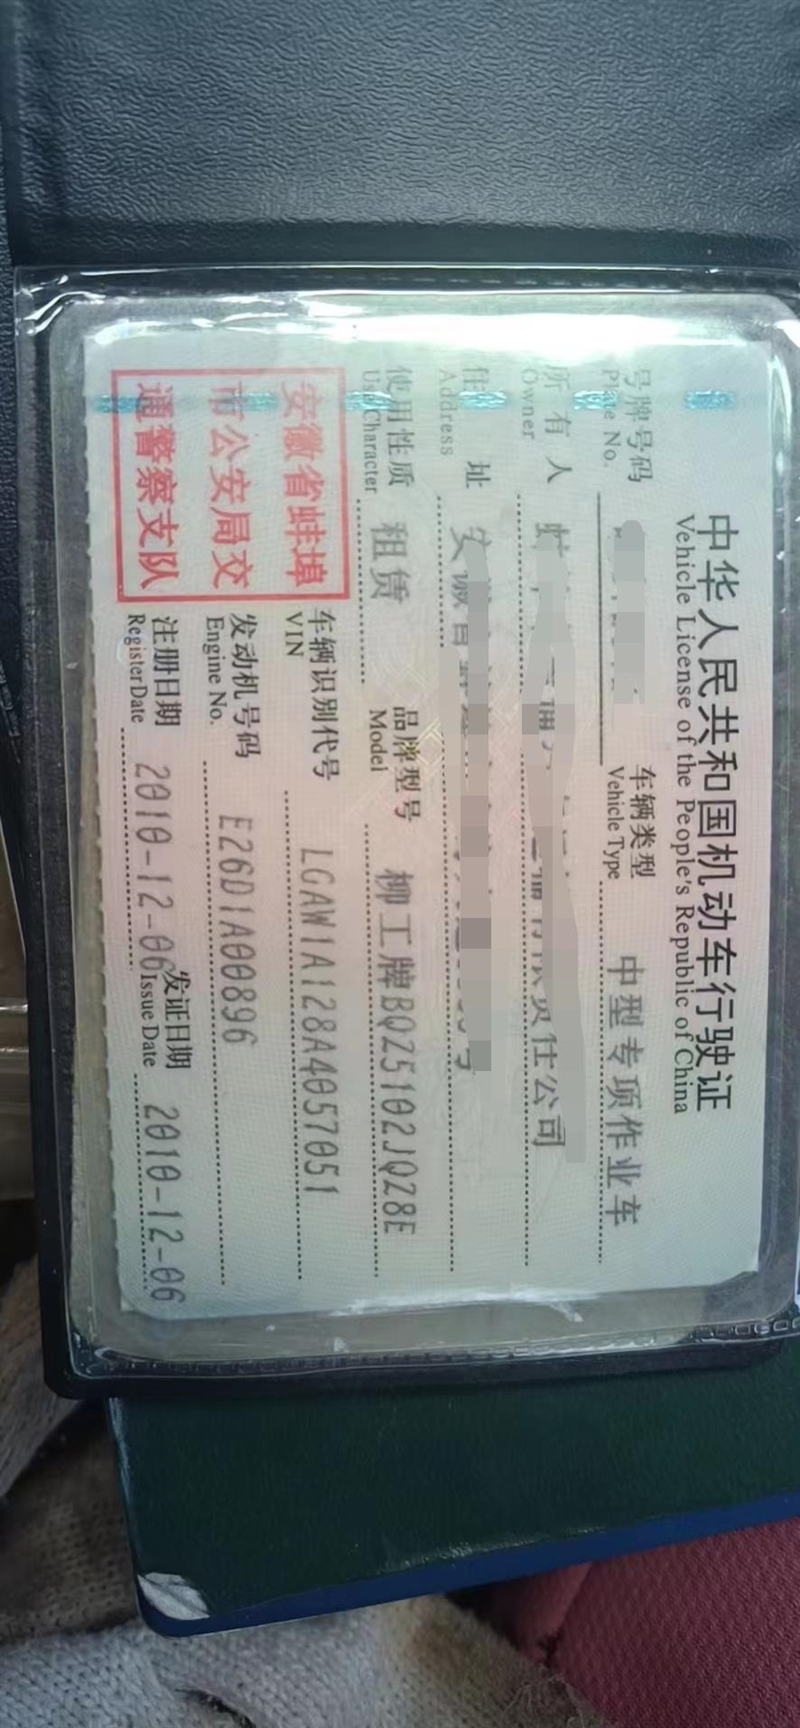 中华人民共和国机动车行驶证
Vehicle License of the People's Republic of China
号牌号码
Plate No.
车辆类型 中型专项作业车
Vehicle Type
所有人 责任公司
Owner
住址 安徽省
Address 号
使用性质 租赁
Use Character
品牌型号 柳工牌BQZ5102JQZ8E
Model
安徽省蚌埠
市公安局交
通警察支队
车辆识别代号 LGAW1A128A4057051
VIN
发动机号码 E26D1A00896
Engine No.
注册日期 2010-12-06 发证日期 2010-12-06
Register Date Issue Date